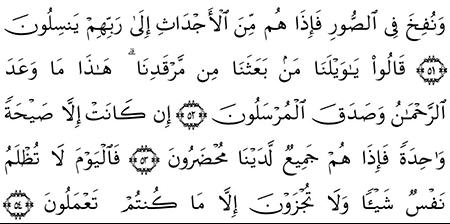 وَنُفِخَ فِى ٱلصُّورِ فَإِذَا هُم مِّنَ ٱلْأَجْدَاثِ إِلَىٰ رَبِّهِمْ يَنسِلُونَ
﴿٥١﴾ قَالُوا۟ يَٰوَيْلَنَا مَنۢ بَعَثَنَا مِن مَّرْقَدِنَا ۗ هَٰذَا مَا وَعَدَ
ٱلرَّحْمَٰنُ وَصَدَقَ ٱلْمُرْسَلُونَ ﴿٥٢﴾ إِن كَانَتْ إِلَّا صَيْحَةً
وَٰحِدَةً فَإِذَا هُمْ جَمِيعٌ لَّدَيْنَا مُحْضَرُونَ ﴿٥٣﴾ فَٱلْيَوْمَ لَا تُظْلَمُ
نَفْسٌ شَيْـًٔا وَلَا تُجْزَوْنَ إِلَّا مَا كُنتُمْ تَعْمَلُونَ ﴿٥٤﴾